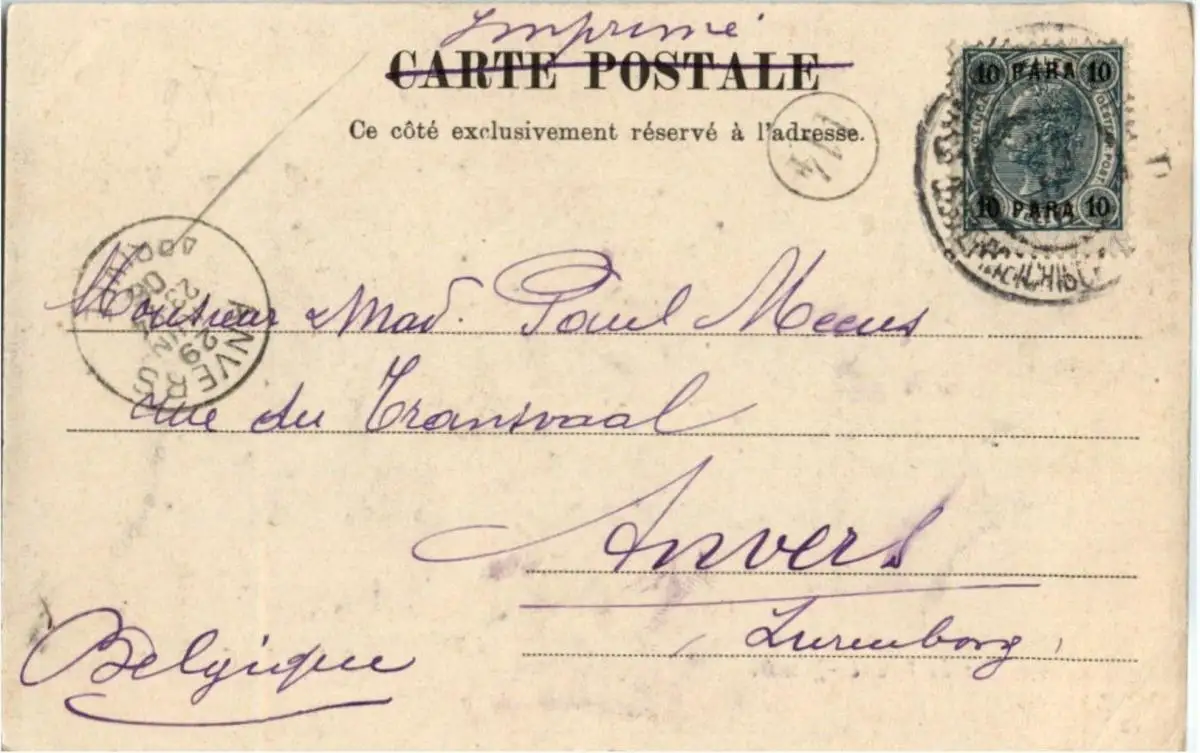 Imprimé
CARTE POSTALE
Ce côté exclusivement réservé à l'adresse.
114
10 PARA 10
OESTERR. POST
10 PARA 10
ANVERS
29
Monsieur & Mad. Paul Meeus
rue du Transvaal
Anvers
Luxemborg
Belgique